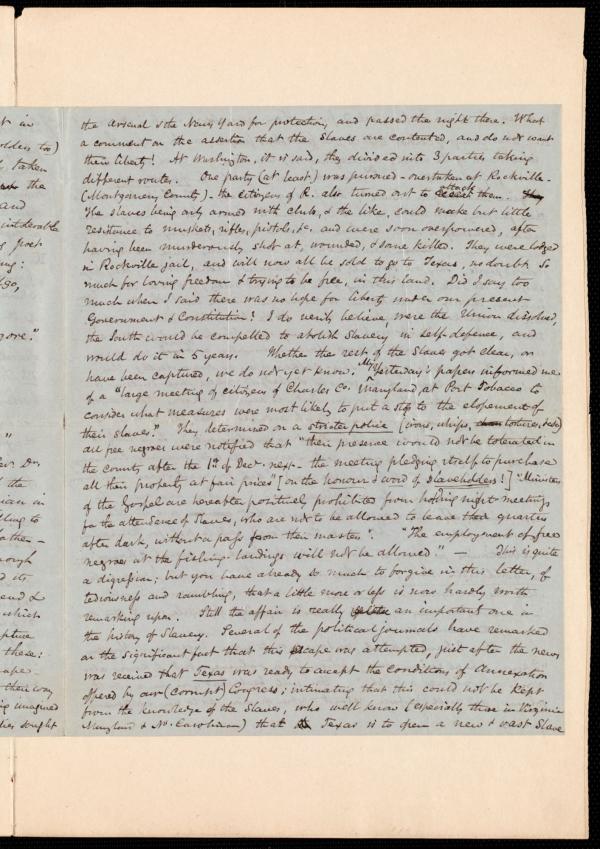 the arsenal & the Navy Yard for protection, and passed the night there. What
a comment on the assertion that the slaves are contented, and do not want
their liberty! At Washington, it is said, they divided into 3 parties taking
different routes. One party (at least) was pursued - overtaken at Rockville -
(Montgomery County) - the citizens of R. also turned out to attack them.
The slaves being only armed with clubs, & the like, could make but little
resistance to muskets, rifles, pistols, &c. and were soon overpowered, after
having been murderously shot at, wounded, & some killed. They were lodged
in Rockville jail, and will now all be sold to go to Texas, no doubt. So
much for loving freedom & trying to be free, in this land. Did I say too
much when I said there was no hope for liberty under our present
Government & Constitution? I do verily believe, were the Union dissolved,
the South would be compelled to abolish Slavery in self-defence, and
would do it in 5 years. Whether the rest of the Slaves got clear, or
have been captured, we do not yet know. Yesterday's papers informed me
of a "large meeting of citizens of Charles Co. Maryland, at Port Tobacco to
consider what measures were most likely to put a stop to the elopement of
their slaves." They determined on a stricter police (irons, whips, tortures, &c)
all free negroes were notified that "their presence would not be tolerated in
the county after the 1st of Decr. next - the meeting pledging itself to purchase
all their property at fair prices" [on the honour & word of slaveholders!] "Ministers
of the Gospel are hereafter positively prohibited from holding night-meetings
for the attendance of slaves, who are not to be allowed to leave their quarters
after dark, without a pass from their master". "The employment of free
negroes at the fishing-landings will not be allowed." — This is quite
a digression; but you have already so much to forgive in this letter, of
tediousness and rambling, that a little more or less is now hardly worth
remarking upon. Still the affair is really an important one in
the history of Slavery. Several of the political journals have remarked
on the significant fact that this escape was attempted, just after the news
was received that Texas was ready to accept the conditions of Annexation
offered by our (corrupt) Congress; intimating that this could not be kept
from the knowledge of the slaves, who well know (especially those in Virginia
Maryland & No. Carolina) that Texas is to open a new & vast Slave